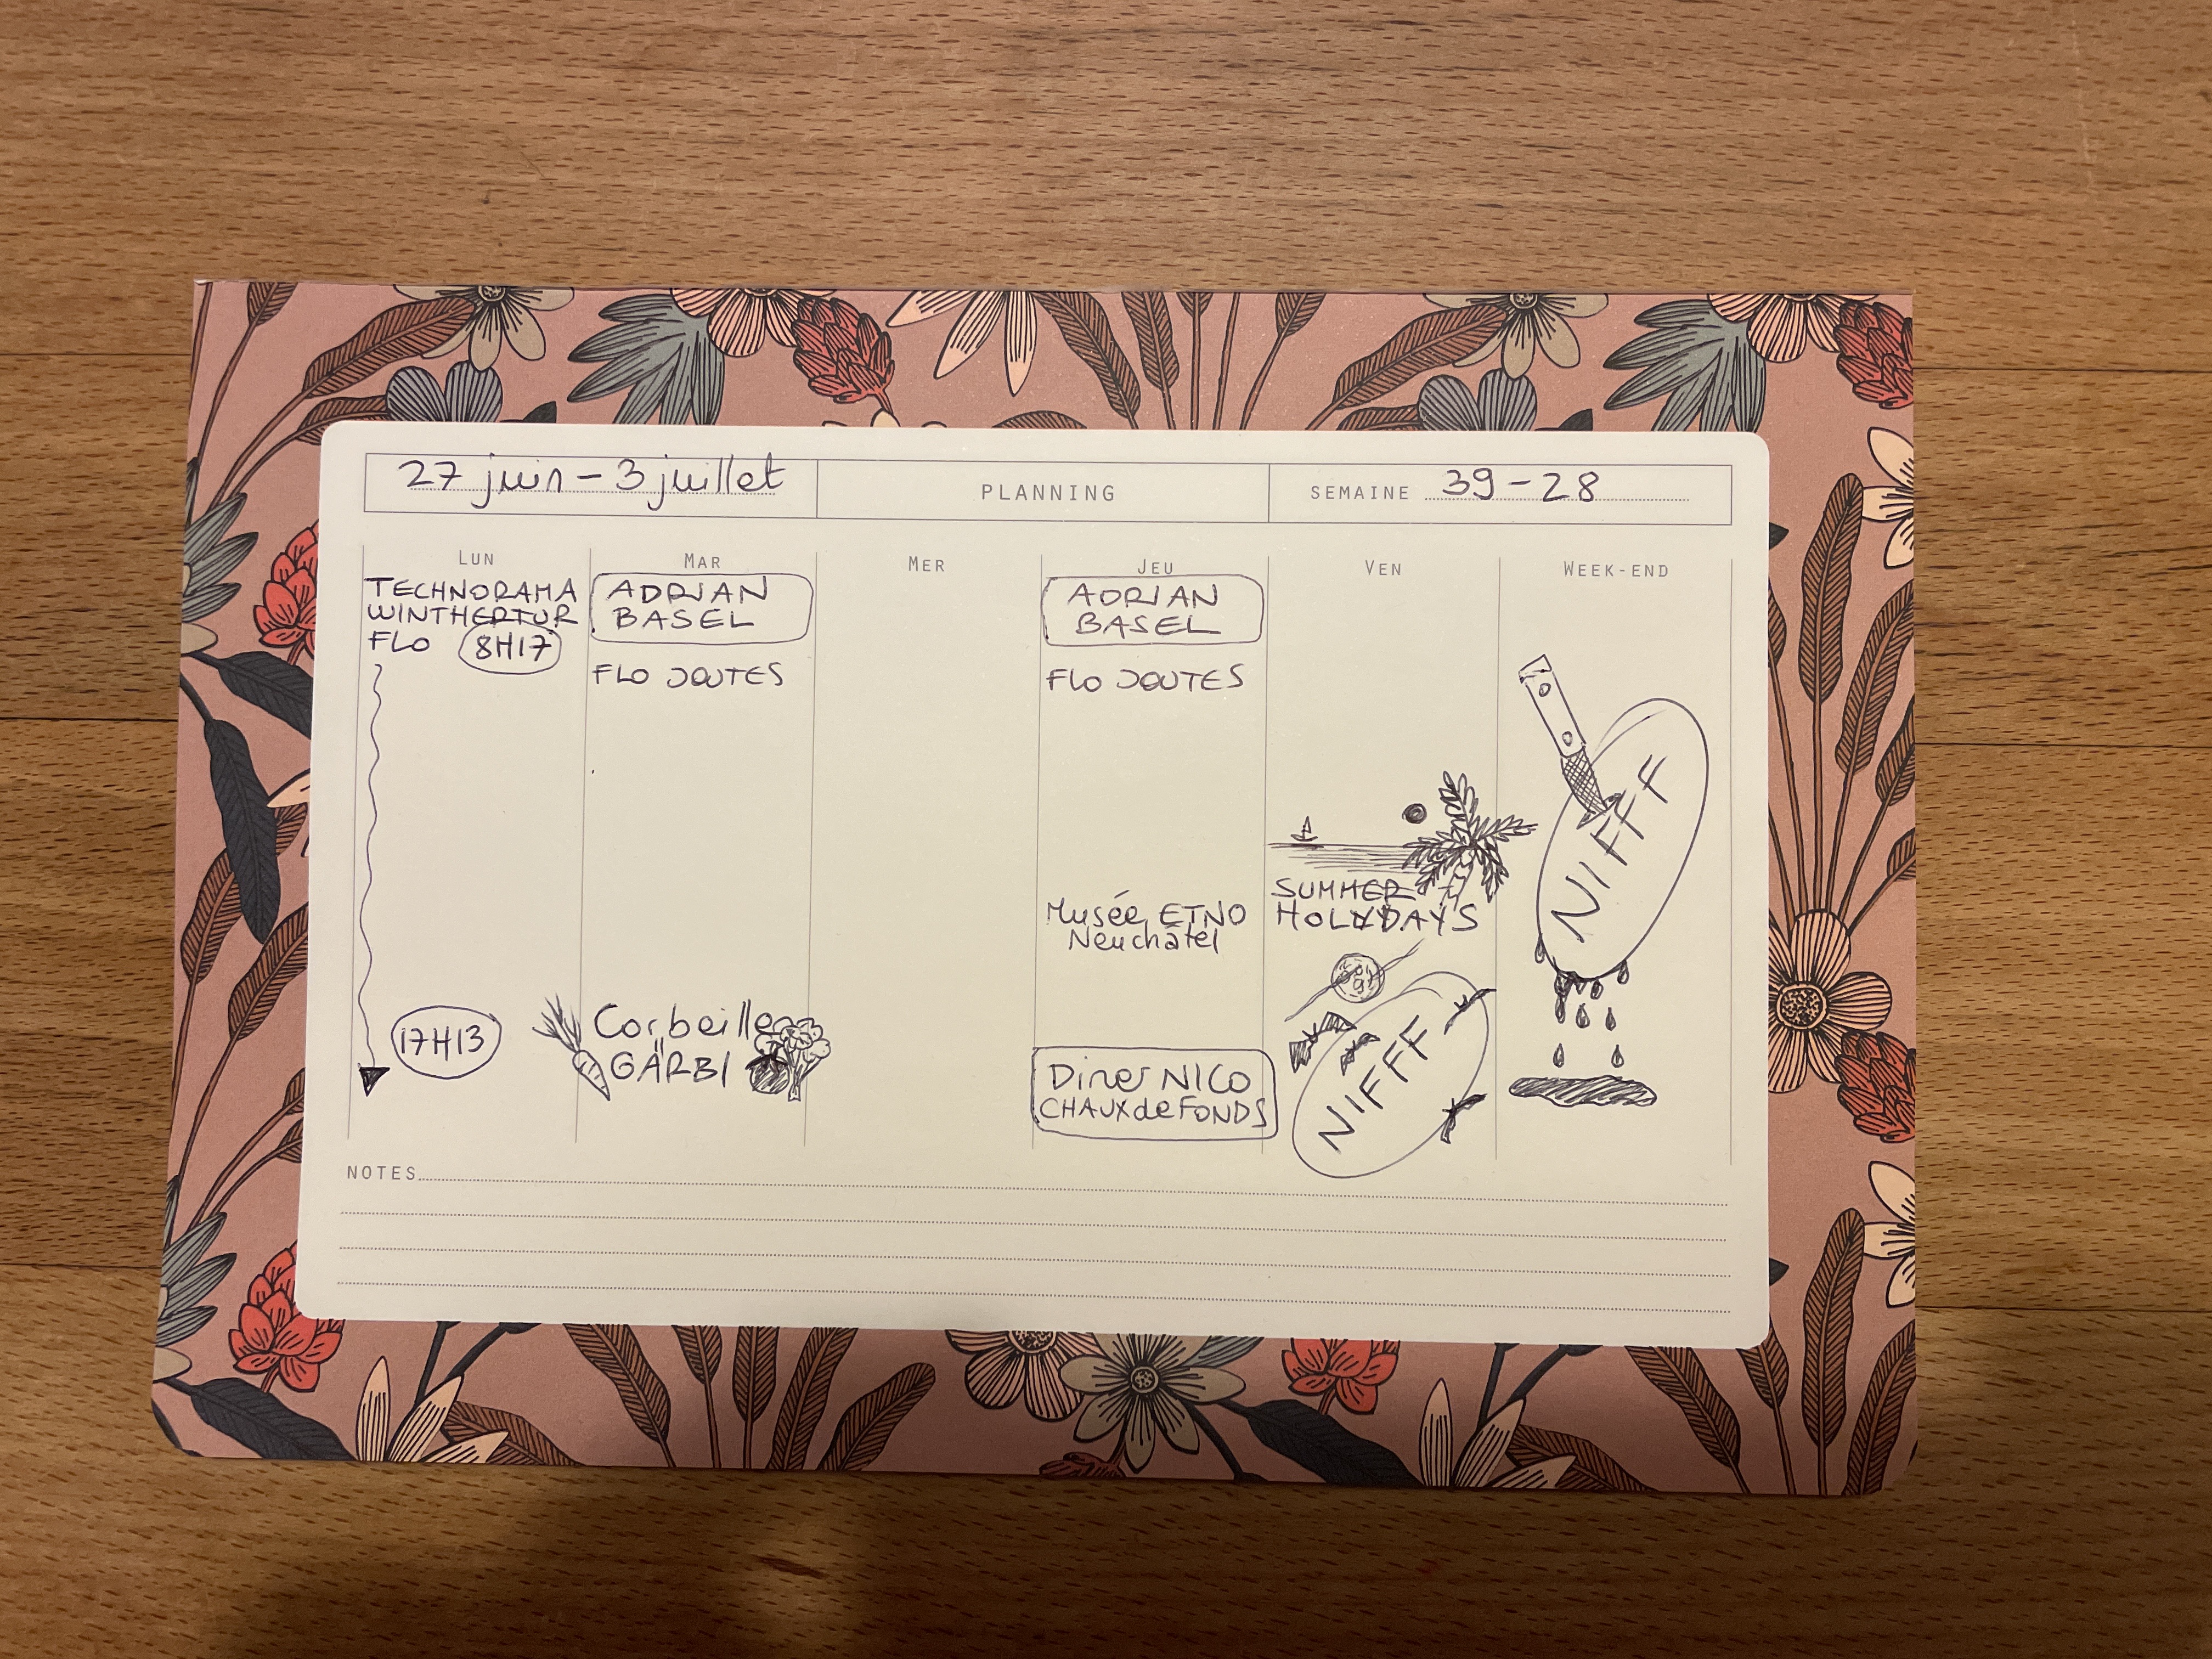 27 juin - 3 juillet
PLANNING
SEMAINE 39-28
LUN
TECHNORAMA
WINTHERTUR
FLO 8H17
17H13
MAR
ADRIAN
BASEL
FLO JOUTES
Corbeille
GÄRBI
MER
JEU
ADRIAN
BASEL
FLO JOUTES
Musée ETNO
Neuchâtel
Diner NICO
CHAUX de FONDS
VEN
SUMMER
HOLYDAYS
NIFFF
WEEK-END
NIFFF
NOTES